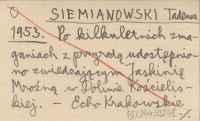 SIEMIANOWSKI Tadeusz
1953. Po kilkuletnich zma-
ganiach z przyrodą udostępnio-
no zwiedzającym Jaskinię
Mroźną w Dolinie Kościelis-
kiej. — Echo Krakowskie